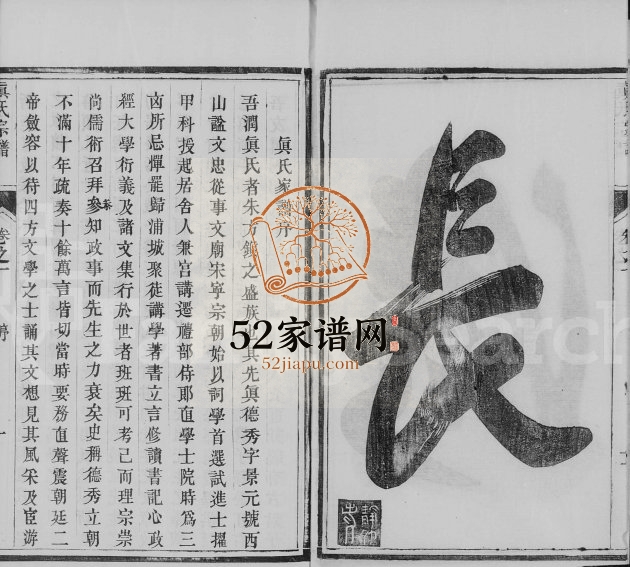 長
眞氏家
吾潤眞氏者朱方鎮之盛族其先眞德秀字景元號西
山謚文忠從事文廟宋宁宗朝始以詞學首選試進士擢
甲科授起居舍人兼宮講遷禮部侍郎直學士院時爲三
凶所忌憚罷歸浦城聚徒講學著書立言修讀書記心政
經大學衍義及諸文集行於世者班班可考己而理宗崇
尚儒術召拜參知政事而先生之力衰矣史稱德秀立朝
不滿十年疏奏十餘萬言皆切當時要務直聲震朝廷二
帝斂容以待四方文學之士誦其文想見其風采及宦游
眞氏宗譜
卷之一
52家谱网
52jiapu.com